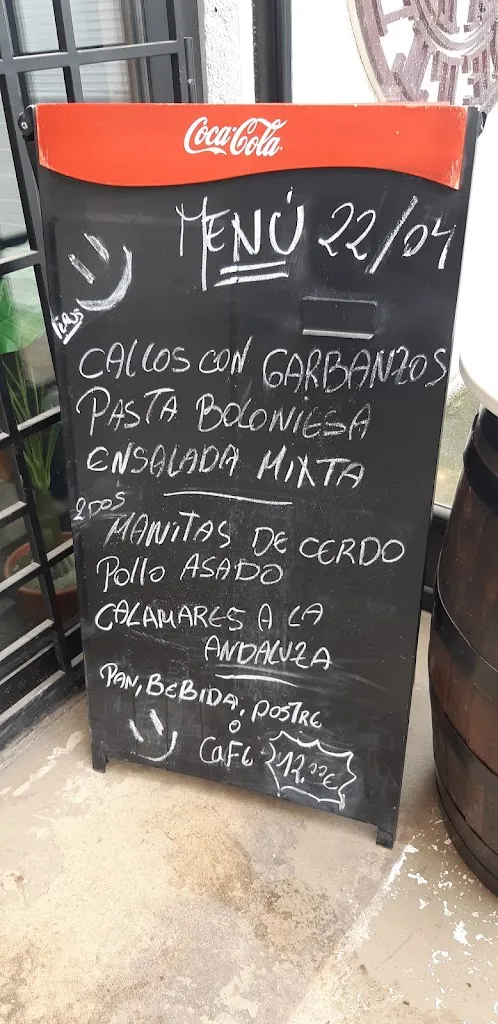 Coca-Cola
MENÚ 22/04
CALLOS CON GARBANZOS
PASTA BOLONIESA
ENSALADA MIXTA
2DOS
MANITAS DE CERDO
Pollo ASADO
CALAMARES A LA
ANDALUZA
PAN, BEBIDA, POSTRE
O
CAFE